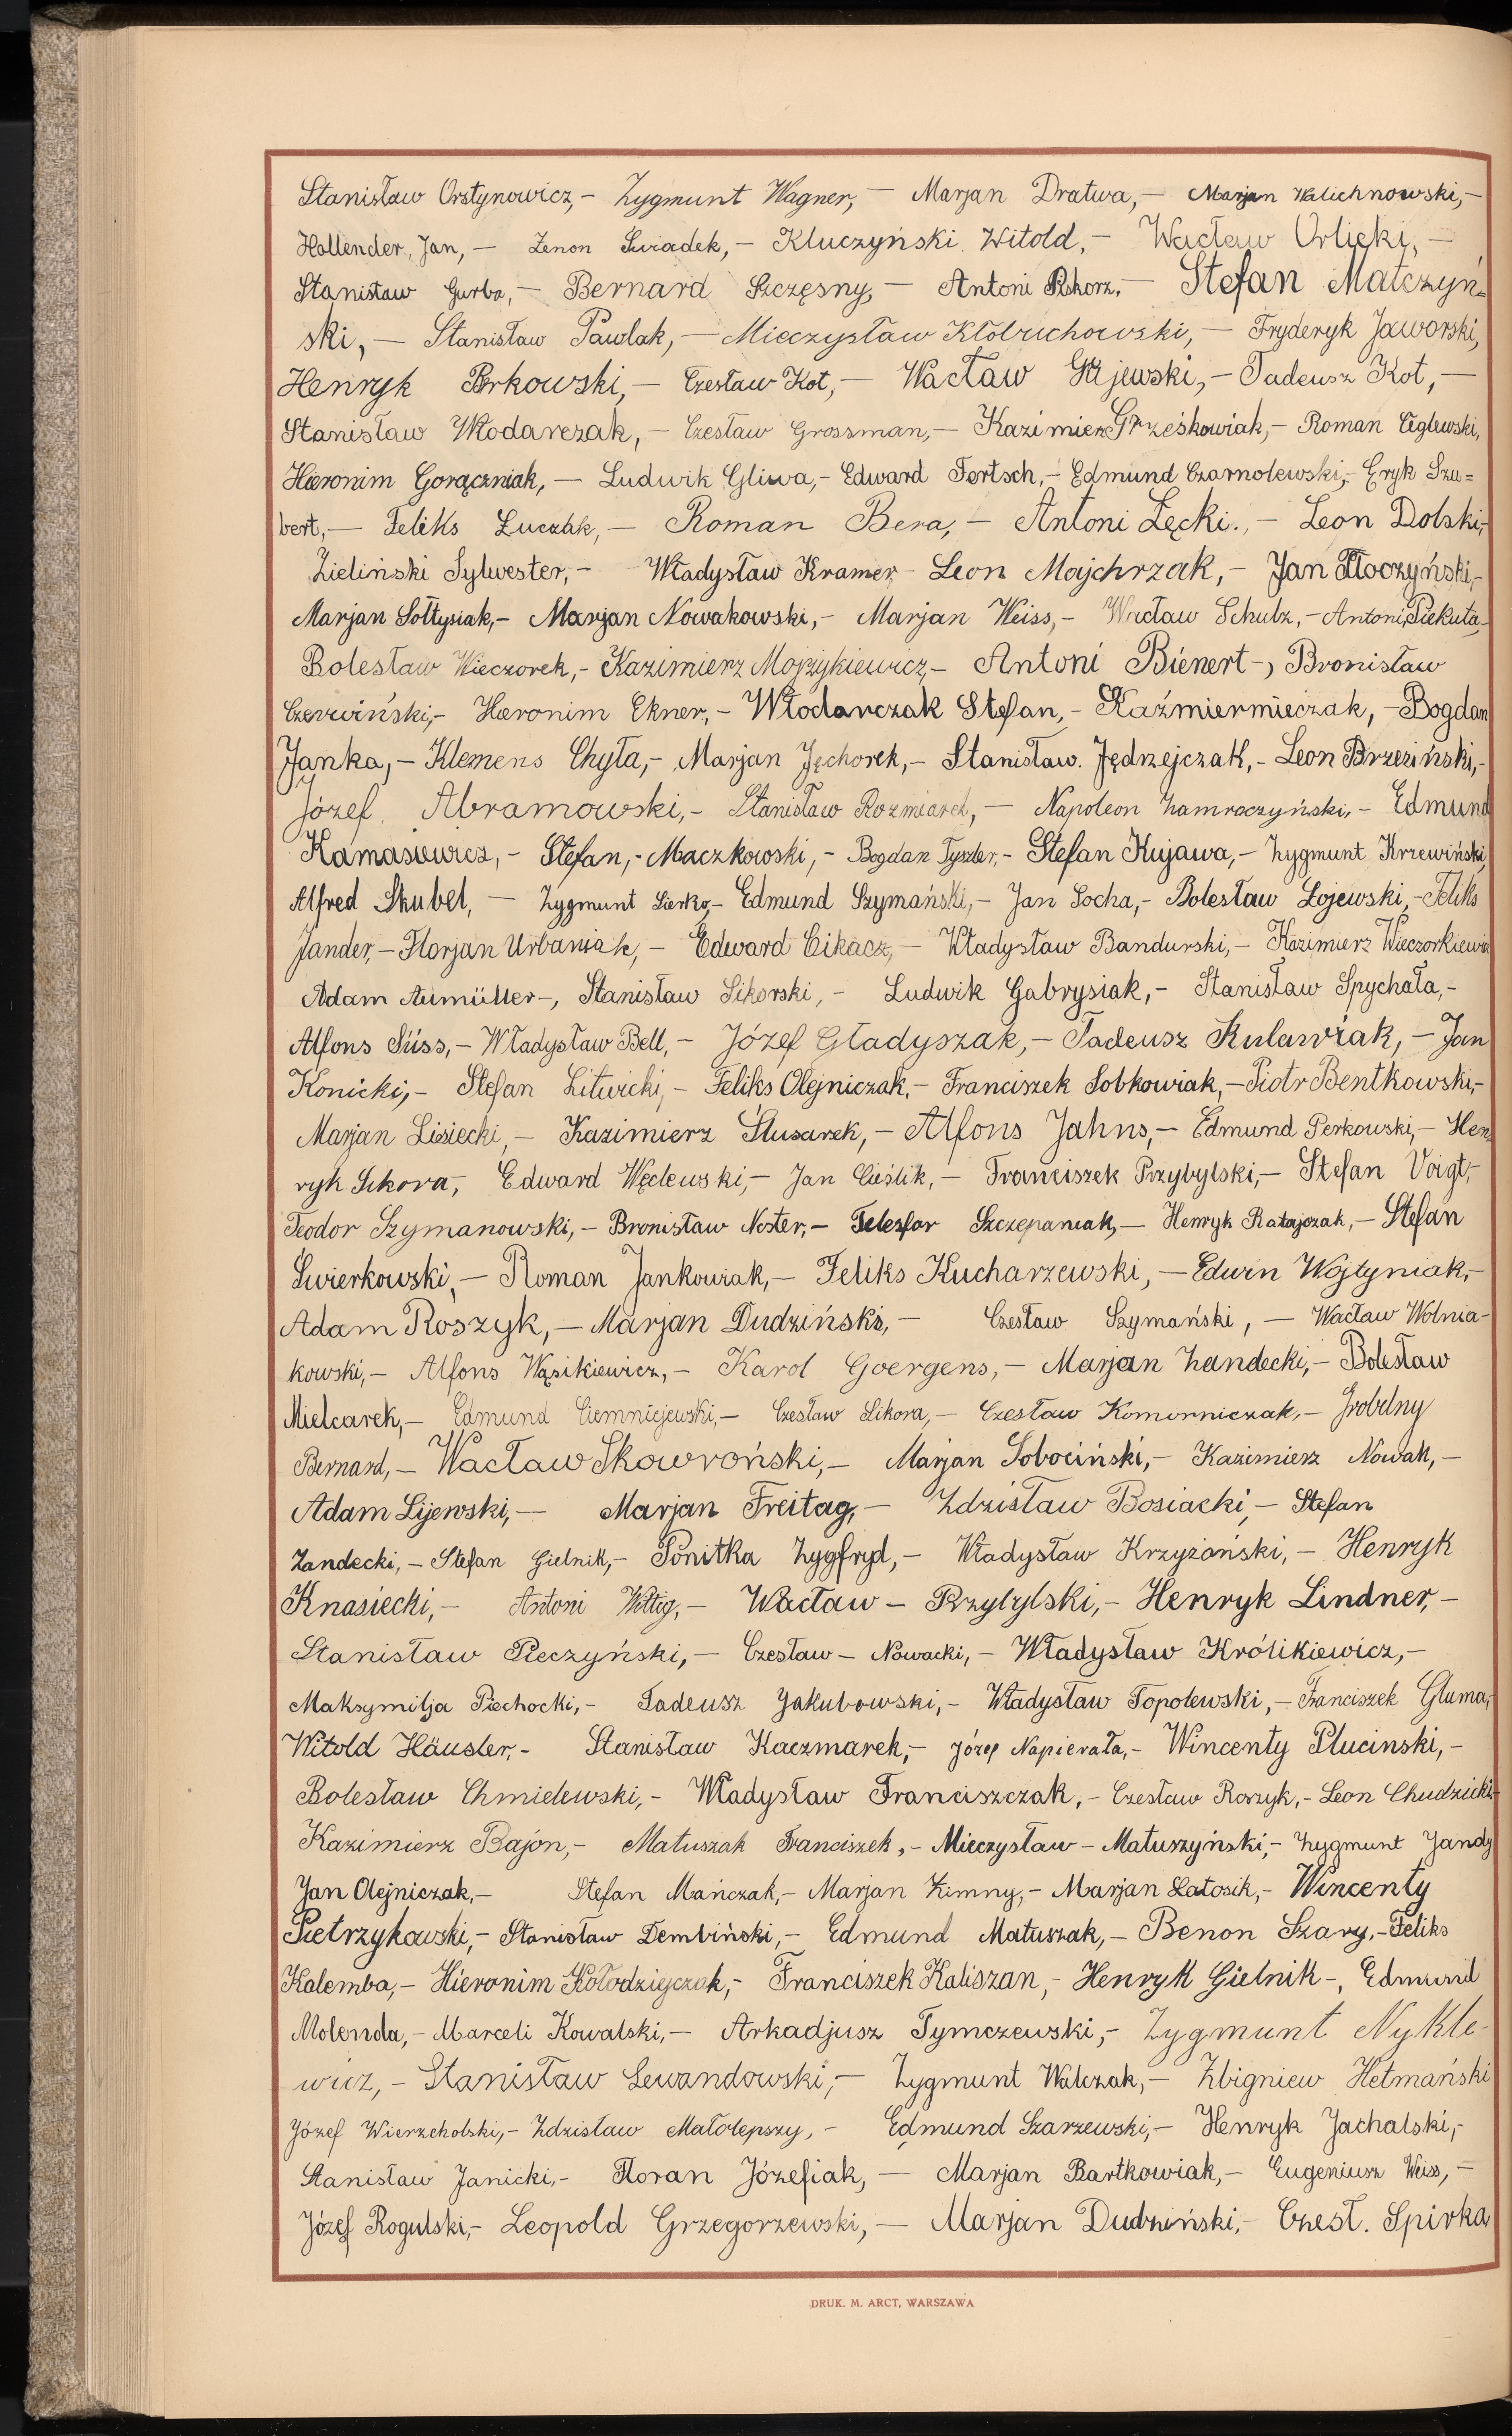 Stanisław Orstynowicz,- Zygmunt Wagner, — Marjan Dratwa,— Marjan Walichnowski,-
Hollender, Jan, — Zenon Swiadek,- Kluczyński Witold,- Wacław Orlicki, —
Stanisław Gurba,- Bernard Szczęsny, — Antoni — Stefan Matczyń-
ski, — Stanisław Pawlak, — Mieczysław Kłobuchowski, — Fryderyk Jaworski,
Henryk Perkowski, — Czesław Kot, — Wacław Gajewski, — Tadeusz Kot, —
Stanisław Włodarczak, — Czesław Grossman, — Kazimierz Grześkowiak,- Roman Ceglewski,
Hieronim Gorączniak, — Ludwik Gliwa,- Edward Fertsch,- Edmund Czarnolewski,- Eryk Szu=
bert,— Feliks Łuczak, — Roman Bera, — Antoni Łęcki., — Leon Dolski,-
Zieliński Sylwester, - Władysław Kramer - Leon Majchrzak, — Jan Tłoczyński,-
Marjan Sołtysiak,- Marjan Nowakowski, - Marjan Weiss, - Wacław Schulz, - Antoni Piekuta,-
Bolesław Wieczorek, - Kazimierz Mojżykiewicz,- Antoni Bienert -, Bronisław
Czerwiński,- Hieronim Ekner, - Włodarczak Stefan, - Kaźmiermieczak, - Bogdan
Janka, - Klemens Chyła,- Marjan Jęchorek,- Stanisław. Jędrzejczak,- Leon Brzeziński,-
Józef Abramowski,- Stanisław Rozmiarek, — Napoleon Zamroczyński,- Edmund
Kamasiewicz, - Stefan,- Maczkowski, - Bogdan Tyszler,- Stefan Kujawa, - Zygmunt Krzewiński,
Alfred Skubel, — Zygmunt Sierko,- Edmund Szymański,- Jan Socha,- Bolesław Łojewski,- Feliks
Jander, - Florjan Urbaniak, - Edward Cikacz, - Władysław Bandurski,- Kazimierz Wieczorkiewicz
Adam Aumüller-, Stanisław Sikorski, - Ludwik Gabrysiak,- Stanisław Spychała,-
Alfons Süss,- Władysław Bell, - Józef Gładyszak,- Tadeusz Kulawiak, - Jan
Konicki, - Stefan Litwicki, - Feliks Olejniczak, - Franciszek Sobkowiak, - Piotr Bentkowski,-
Marjan Lisiecki, — Kazimierz Ślusarek,- Alfons Jahns,- Edmund Perkowski,- Hen
ryk Sikora, Edward Węclewski,- Jan Cieślik, - Franciszek Przybylski,- Stefan Voigt,-
Teodor Szymanowski,- Bronisław Nester,- Telesfor Szczepaniak,- Henryk Ratajczak, - Stefan
Świerkowski, - Roman Jankowiak, - Feliks Kucharzewski, - Edwin Wojtyniak,-
Adam Roszyk, — Marjan Dudziński, — Czesław Szymański, — Wacław Wolnia-
kowski, - Alfons Wąsikiewicz, - Karol Goergens, - Marjan Zandecki,- Bolesław
Mielcarek, - Edmund Ciemniejewski,- Czesław Sikora, - Czesław Komorniczak, - Grobelny
Bernard, - Wacław Skowroński, - Marjan Sobociński,- Kazimierz Nowak, -
Adam Lijewski, — Marjan Freitag, - Zdzisław Bosiacki, - Stefan
Zandecki, - Stefan Gielnik,- Ponitka Zygfryd, - Władysław Krzyżański, - Henryk
Knasiecki, - Antoni Wittig,- Wacław - Przybylski, - Henryk Lindner, -
Stanisław Pieczyński, - Czesław - Nowacki, - Władysław Królikiewicz, -
Maksymilja Piechocki,- Tadeusz Jakubowski,- Władysław Topolewski, - Franciszek Gluma,
Witold Häusler, - Stanisław Kaczmarek,- Józef Napierała,- Wincenty Plucinski, -
Bolesław Chmielewski, - Władysław Franciszczak, - Czesław Roszyk, - Leon Chudzicki,
Kazimierz Bajon,- Matuszak Franciszek, - Mieczysław - Matuszyński,- Zygmunt Jandy
Jan Olejniczak, - Stefan Mańczak, - Marjan Zimny, - Marjan Łatosik, - Wincenty
Pietrzykowski,- Stanisław Dembiński,- Edmund Matuszak, - Benon Szary, - Feliks
Kalemba, - Hieronim Kołodziejczak,- Franciszek Kaliszan,- Henryk Gielnik -, Edmund
Molenda,- Marceli Kowalski, - Arkadjusz Tymczewski,- Zygmunt Nykle-
wicz, - Stanisław Lewandowski,- Zygmunt Walczak, - Zbigniew Hetmański
Józef Wierzcholski,- Zdzisław Małolepszy, - Edmund Szarzewski,- Henryk Jachalski,-
Stanisław Janicki, - Floran Józefiak, — Marjan Bartkowiak,- Eugeniusz Weiss, -
Józef Rogulski,- Leopold Grzegorzewski, — Marjan Dudziński,- Czesł. Spirka
DRUK. M. ARCT, WARSZAWA